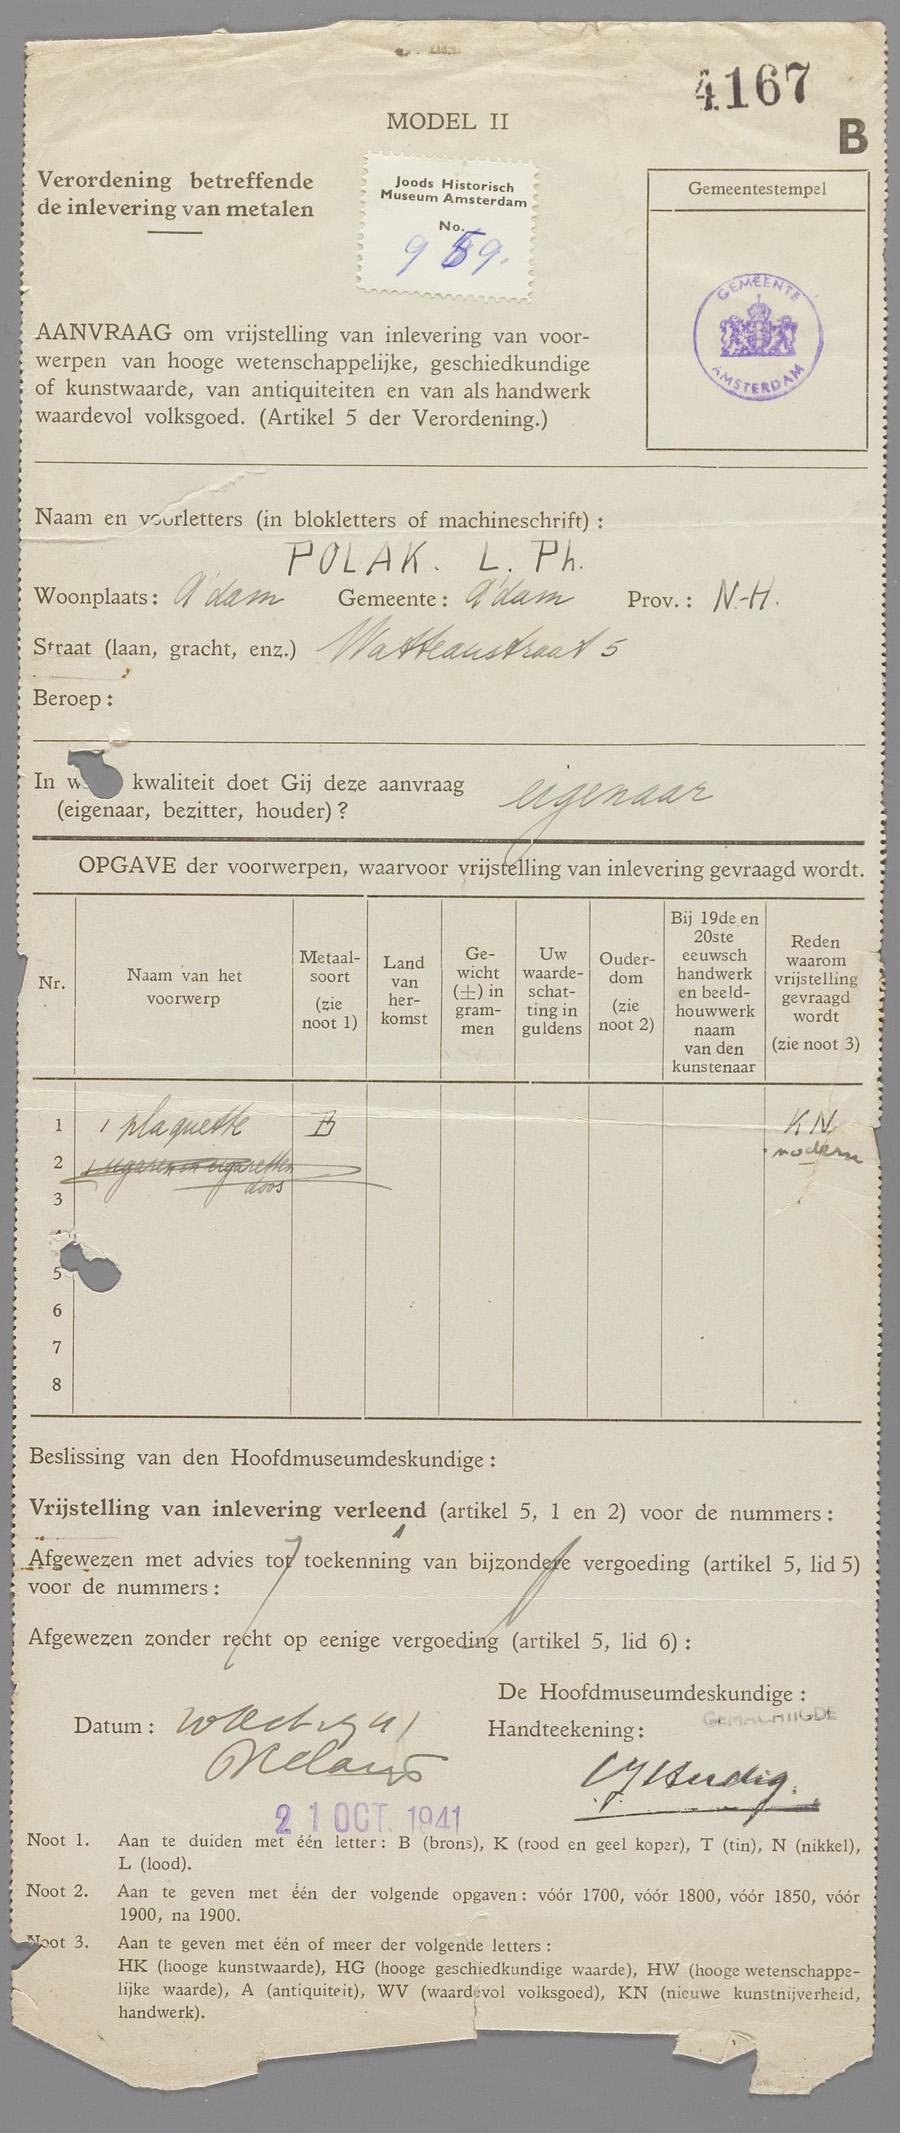 4167
MODEL II
B
Verordening betreffende
de inlevering van metalen
Joods Historisch
Museum Amsterdam
No.
959.
Gemeentestempel
GEMEENTE
AMSTERDAM
AANVRAAG om vrijstelling van inlevering van voor-
werpen van hooge wetenschappelijke, geschiedkundige
of kunstwaarde, van antiquiteiten en van als handwerk
waardevol volksgoed. (Artikel 5 der Verordening.)
Naam en voorletters (in blokletters of machineschrift) :
POLAK. L. Ph.
Woonplaats : A'dam Gemeente : A'dam Prov. : N.-H.
Straat (laan, gracht, enz.) Watteaustraat 5
Beroep :
In kwaliteit doet Gij deze aanvraag eigenaar
(eigenaar, bezitter, houder) ?
OPGAVE der voorwerpen, waarvoor vrijstelling van inlevering gevraagd wordt.
Nr.
Naam van het
voorwerp
Metaal-
soort
(zie
noot 1)
Land
van
her-
komst
Ge-
wicht
(±) in
gram-
men
Uw
waarde-
schat-
ting in
guldens
Ouder-
dom
(zie
noot 2)
Bij 19de en
20ste
eeuwsch
handwerk
en beeld-
houwwerk
naam
van den
kunstenaar
Reden
waarom
vrijstelling
gevraagd
wordt
(zie noot 3)
1 1 plaquette B KN
modern
2 1 sigaren en cigaretten
doos
3
4
5
6
7
8
Beslissing van den Hoofdmuseumdeskundige :
Vrijstelling van inlevering verleend (artikel 5, 1 en 2) voor de nummers :
1
Afgewezen met advies tot toekenning van bijzondere vergoeding (artikel 5, lid 5)
voor de nummers :
Afgewezen zonder recht op eenige vergoeding (artikel 5, lid 6) :
De Hoofdmuseumdeskundige :
GEMACHTIGDE
Datum : Handteekening :
21 OCT. 1941
Noot 1. Aan te duiden met één letter : B (brons), K (rood en geel koper), T (tin), N (nikkel),
L (lood).
Noot 2. Aan te geven met één der volgende opgaven : vóór 1700, vóór 1800, vóór 1850, vóór
1900, na 1900.
Noot 3. Aan te geven met één of meer der volgende letters :
HK (hooge kunstwaarde), HG (hooge geschiedkundige waarde), HW (hooge wetenschappe-
lijke waarde), A (antiquiteit), WV (waardevol volksgoed), KN (nieuwe kunstnijverheid,
handwerk).